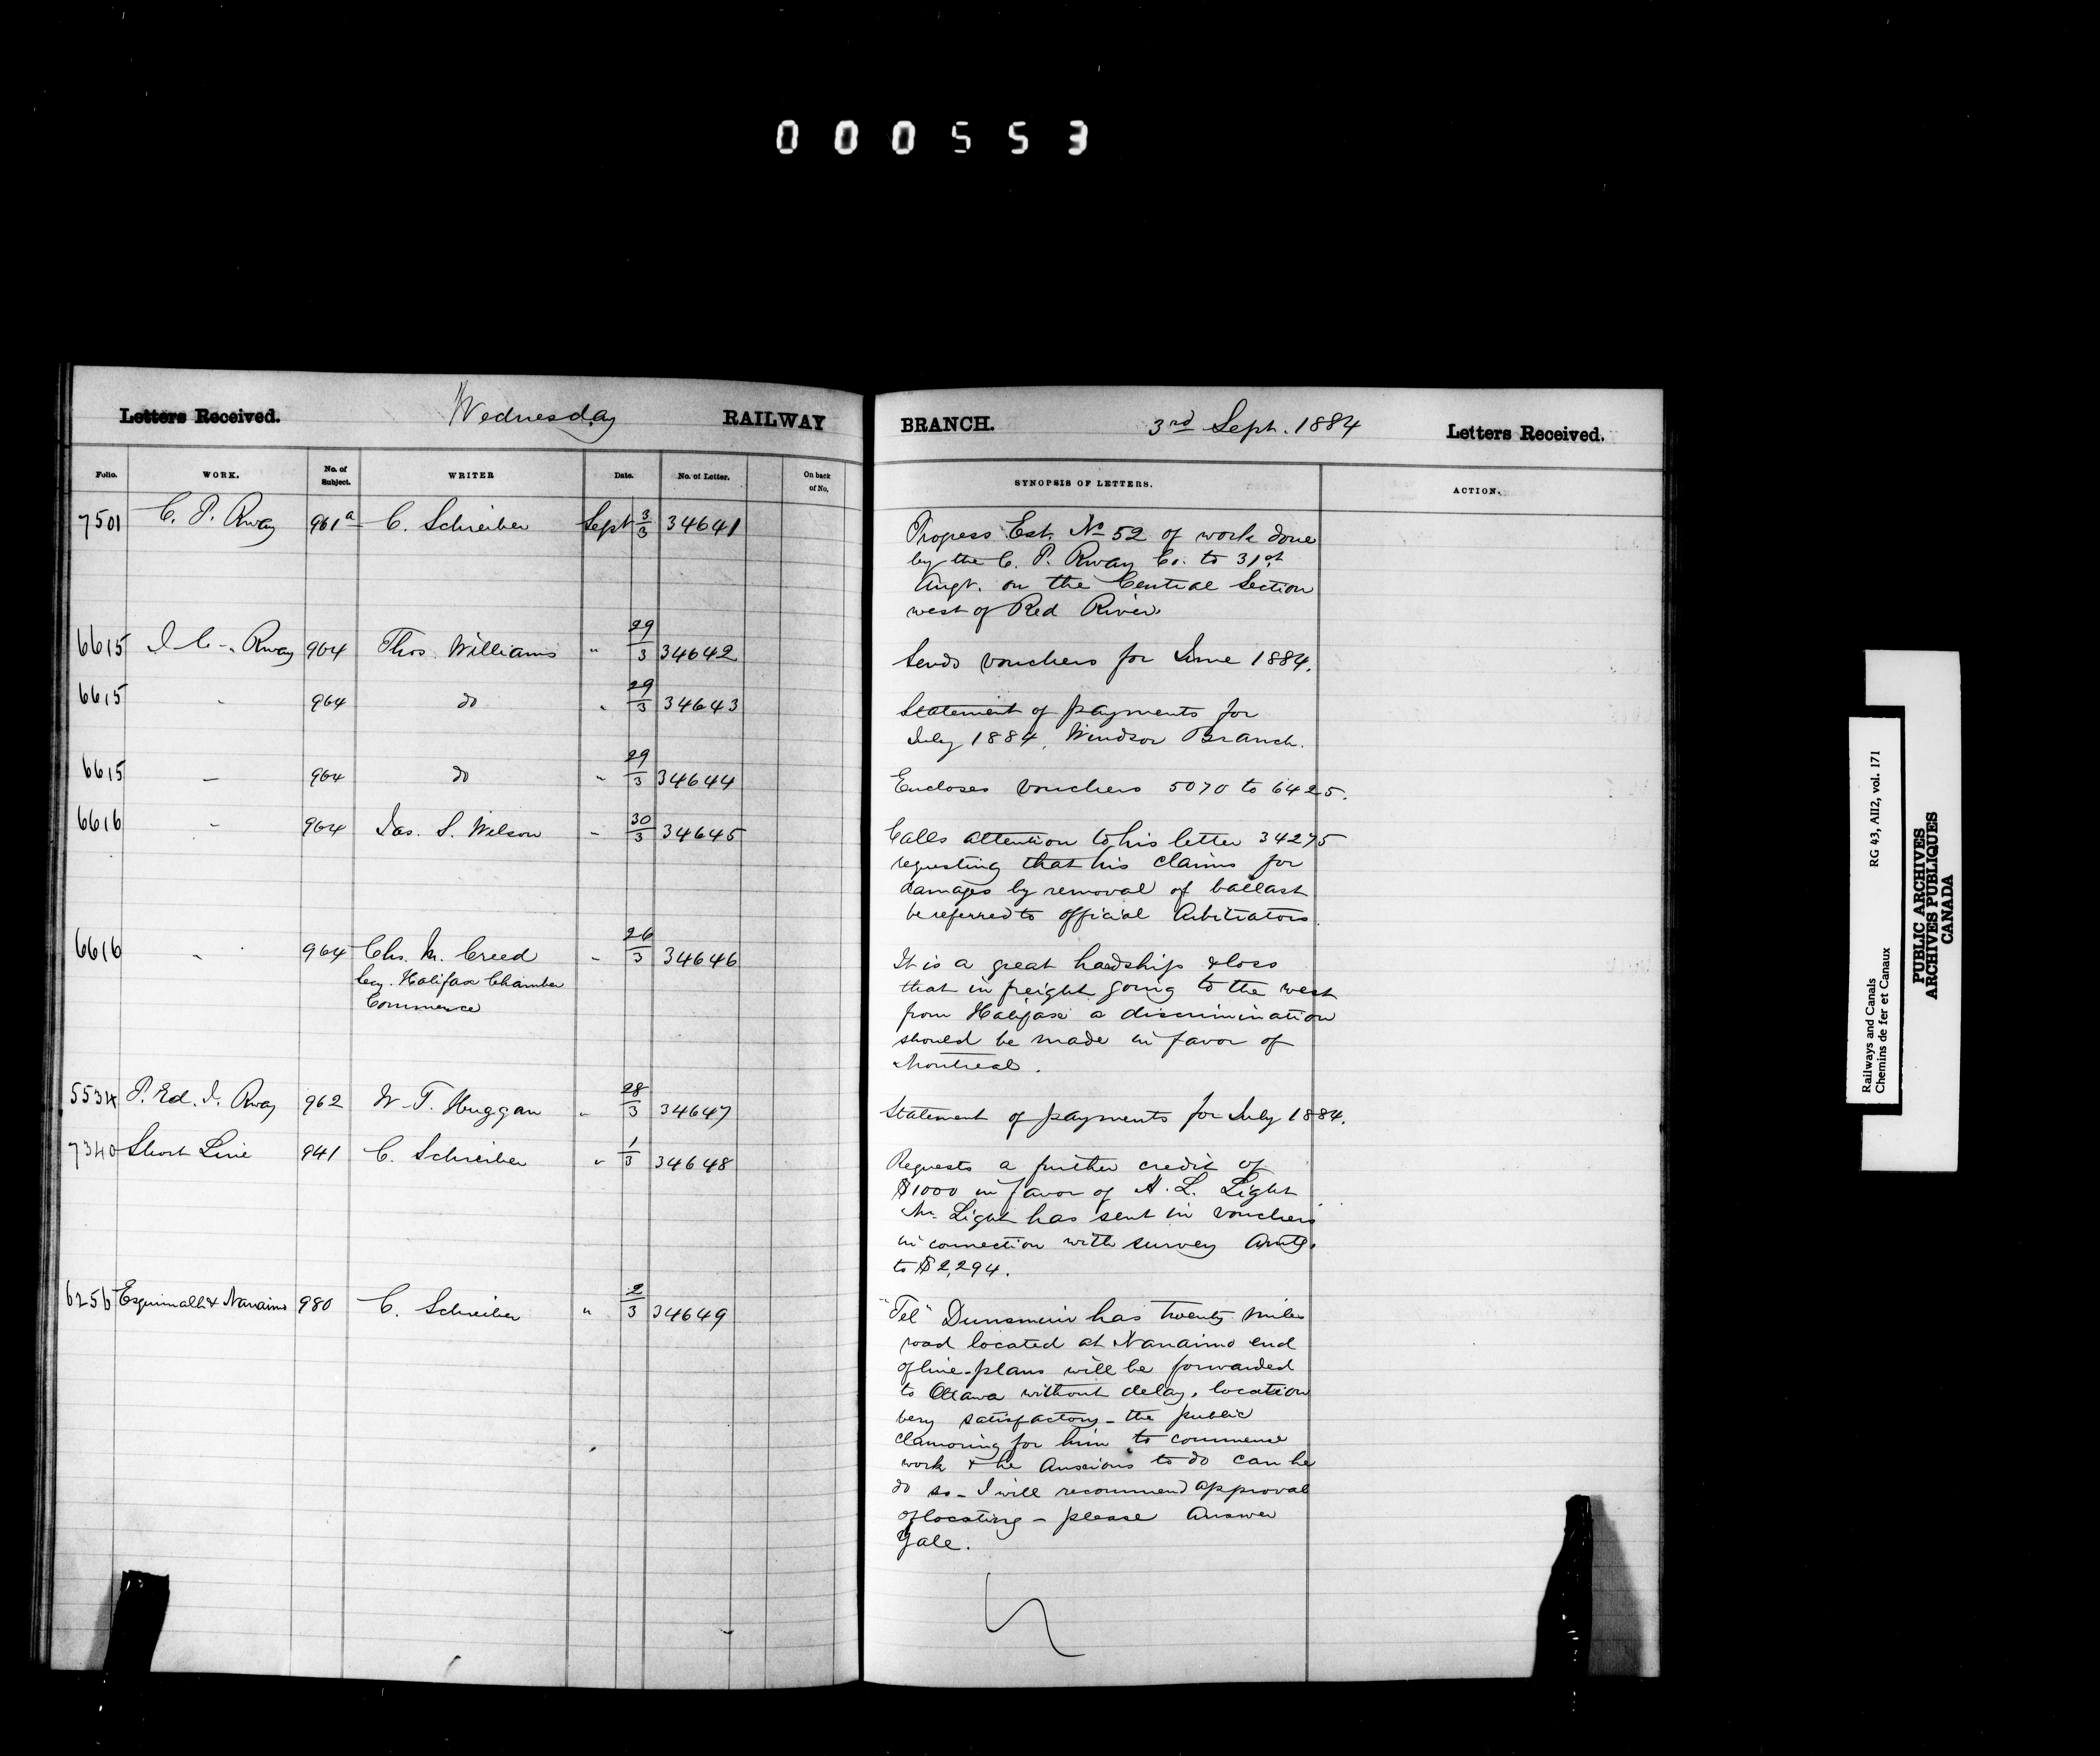 000553
Letters Received. Wednesday RAILWAY
Folio. WORK. No. of Subject. WRITER Date. No. of Letter. On back of No.
7501 C. P. Rway 961a C. Schreiber Sept 3/3 34641
6615 I. C. Rway 964 Thos. Williams " 29/3 34642
6615 " 964 do " 29/3 34643
6615 " 964 do " 29/3 34644
6616 " 964 Jas. S. Wilson " 30/3 34645
6616 " 964 Chs. M. Creed " 26/3 34646
Secy. Halifax Chamber
Commerce
5534 P. Ed. I. Rway 962 W. T. Huggan " 28/3 34647
7340 Short Line 941 C. Schreiber " 1/3 34648
6256 Esquimalt & Nanaimo 980 C. Schreiber " 2/3 34649
BRANCH. 3rd Sept. 1884 Letters Received.
SYNOPSIS OF LETTERS. ACTION.
Progress Est. No 52 of work done
by the C. P. Rway Co. to 31st
Augt. on the Central Section
west of Red River
Sends vouchers for June 1884.
Statement of payments for
July 1884, Windsor Branch.
Encloses vouchers 5070 to 6425.
Calls attention to his letter 34275
requesting that his claims for
damages by removal of ballast
be referred to official Arbitrators.
It is a great hardship & loss
that in freight going to the west
from Halifax a discrimination
should be made in favor of
Montreal.
Statement of payments for July 1884.
Requests a further credit of
$1000 in favor of A. L. Light
Mr. Light has sent in vouchers
in connection with survey Amtg.
to $2,294.
"Tel" Dunsmuir has twenty miles
road located at Nanaimo end
of line. plans will be forwarded
to Ottawa without delay, location
very satisfactory - the public
clamoring for him to commence
work & he anxious to do can he
do so - I will recommend approval
of locating - please Answer
Yale.
Railways and Canals RG 43, AII2, vol. 171
Chemins de fer et Canaux
PUBLIC ARCHIVES
ARCHIVES PUBLIQUES
CANADA